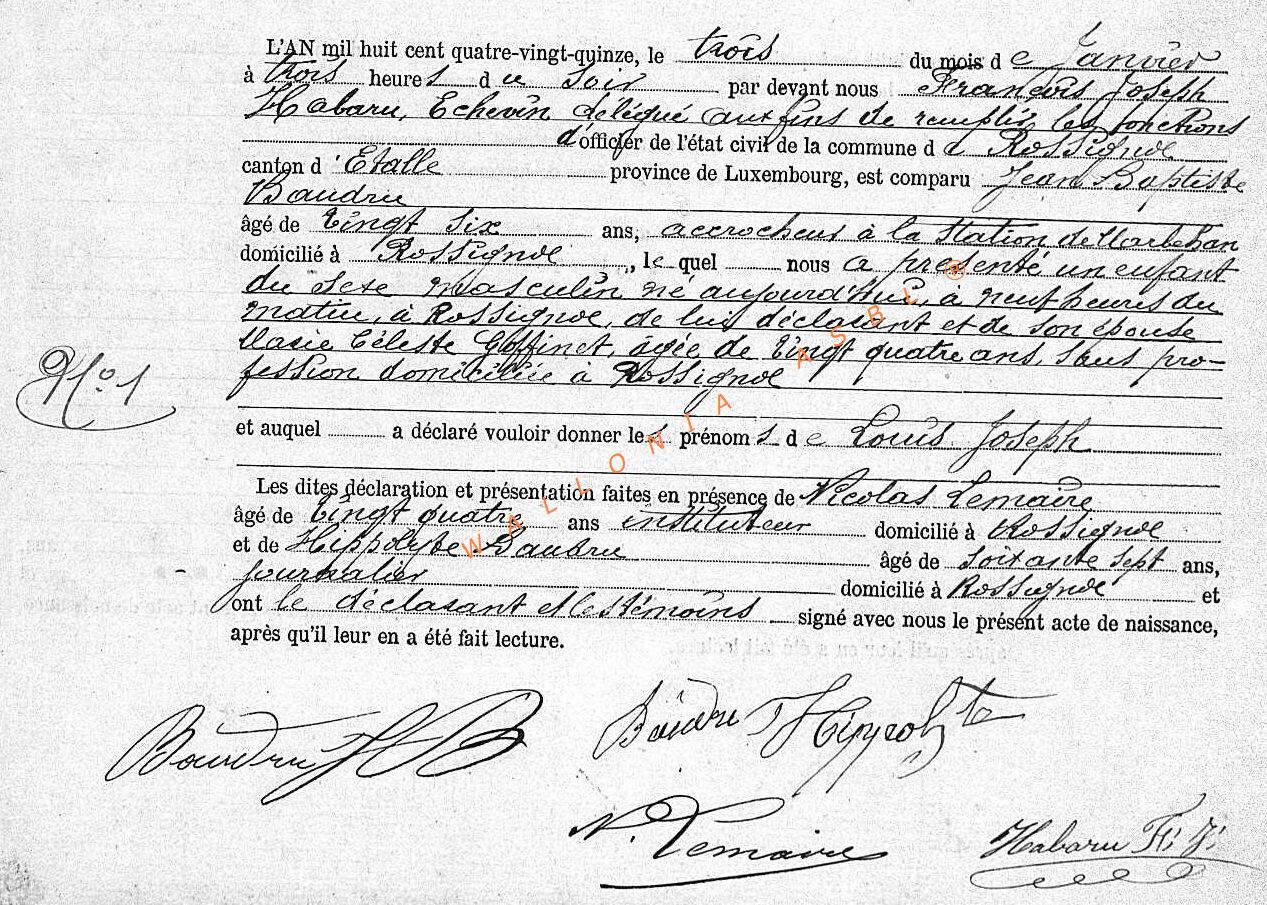 L'AN mil huit cent quatre-vingt-quinze, le trois du mois de Janvier
à trois heures du soir par devant nous François Joseph
Habaru, Echevin délégué aux fins de remplir les fonctions
d'officier de l'état civil de la commune de Rossignol
canton d'Etalle province de Luxembourg, est comparu Jean Baptiste
Baudru
âgé de Vingt six ans, accrocheur à la Station de Marbehan
domicilié à Rossignol, lequel nous a présenté un enfant
du sexe masculin né aujourd'hui, à neuf heures du
matin, à Rossignol, de lui déclarant et de son épouse
Marie Céleste Goffinet, âgée de Vingt quatre ans, sans pro-
fession domiciliée à Rossignol
N° 1
et auquel a déclaré vouloir donner les prénoms de Louis Joseph
Les dites déclaration et présentation faites en présence de Nicolas Lemaire
âgé de Vingt quatre ans instituteur domicilié à Rossignol
et de Hippolyte Baudru âgé de soixante sept ans,
journalier domicilié à Rossignol et
ont le déclarant et les témoins signé avec nous le présent acte de naissance,
après qu'il leur en a été fait lecture.
Baudru JB Baudru Hippolyte
N. Lemaire Habaru F. J.
WALLONIA ASBL ®